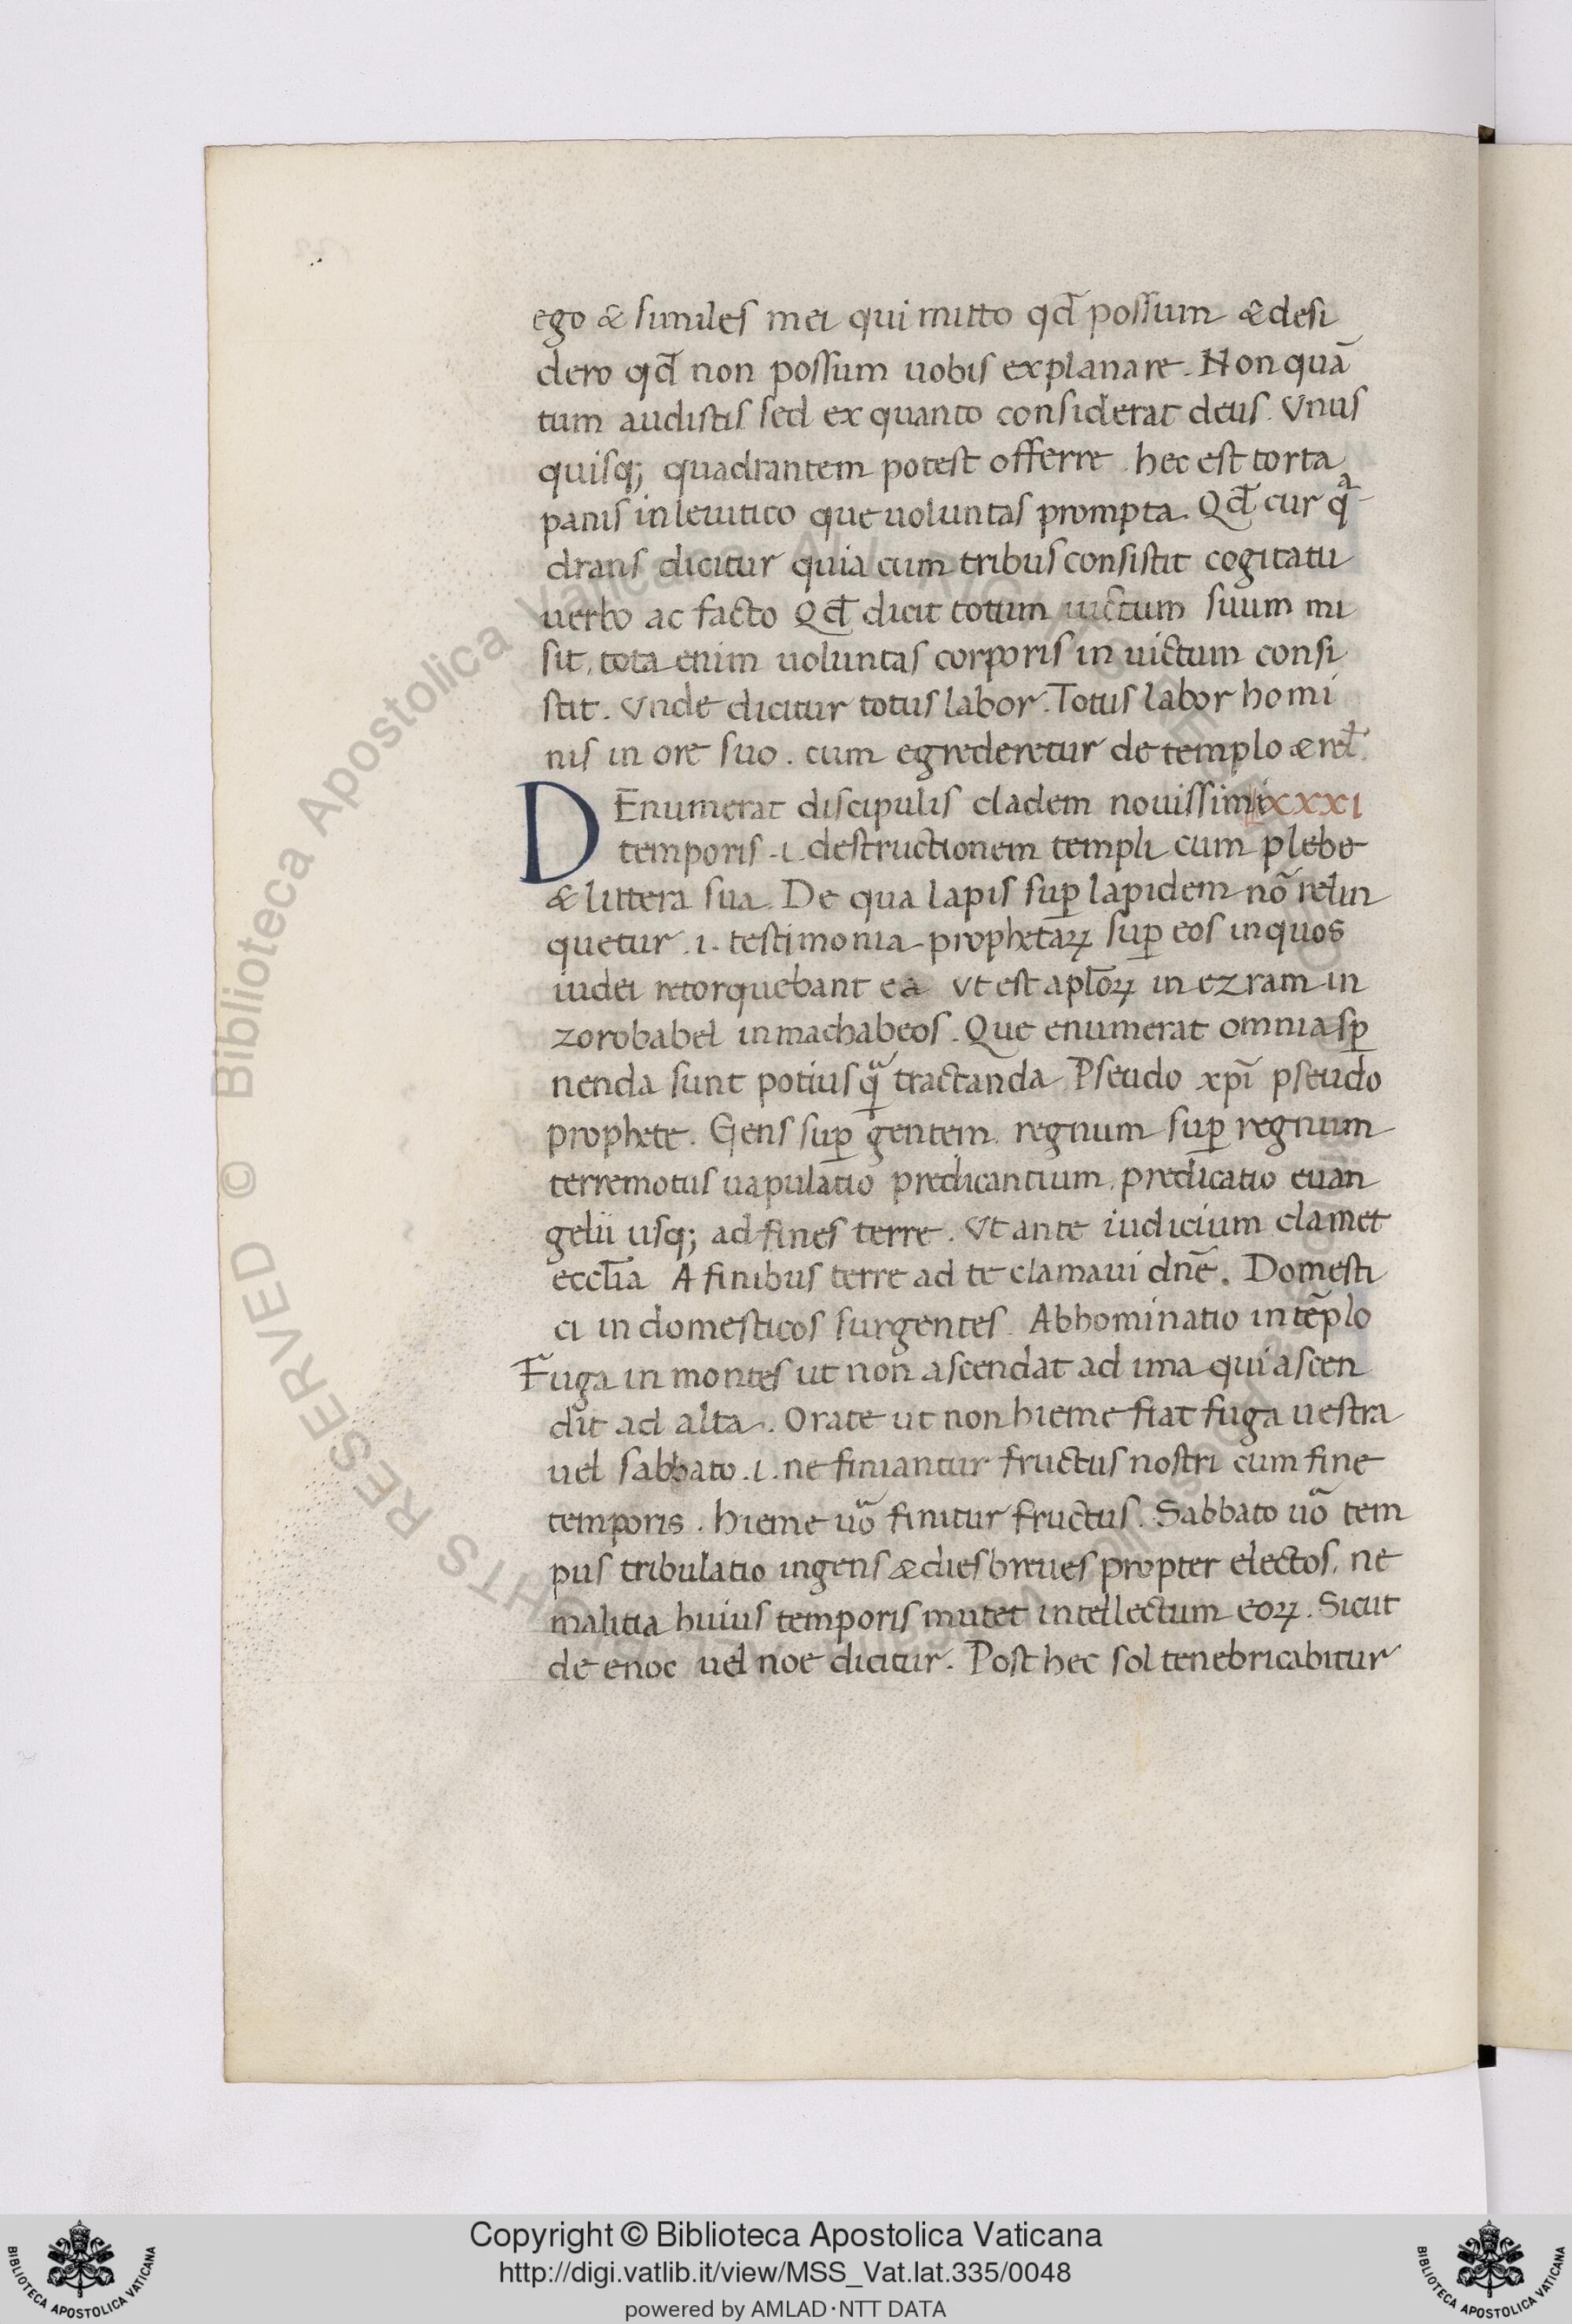 ego & similes mei qui mitto qđ possum & desi
dero qđ non possum uobis explanare. Non quā
tum audistis sed ex quanto considerat deus. Vnus
quisq; quadrantem potest offerre. hec est torta
panis in leuitico que uoluntas prompta. Qđ cur qͣ
drans dicitur quia cum tribus consistit cogitatu
uerbo ac facto Qđ dicit totum uictum suum mi
sit. tota enim uoluntas corporis in uictum consi
stit. Vnde dicitur totus labor. Totus labor homi
nis in ore suo. cum egrederetur de templo & rel̄.
DEnumerat discipulis cladem nouissimi XXXI
temporis .i. destructionem templi cum plebe
& littera sua. De qua lapis suꝑ lapidem nō relin
quetur .i. testimonia prophetaꝝ suꝑ eos in quos
iudei retorquebant ea Vt est apl̄oꝝ in ezram in
zorobabel in machabeos. Que enumerat omnia sꝑ
nenda sunt potius qͣ̄ tractanda Pseudo xp̄i pseudo
prophete. Gens suꝑ gentem. regnum suꝑ regnum
terremotus uapulatio predicantium. predicatio euan
gelii usq; ad fines terre. Vt ante iudicium clamet
eccl̄ia A finibus terre ad te clamaui dn̄e. Domesti
ci in domesticos surgentes. Abhominatio in tēplo
Fuga in montes ut non ascendat ad ima qui ascen
dit ad alta. Orate ut non hieme fiat fuga uestra
uel sabbato .i. ne finiantur fructus nostri cum fine
temporis. hieme uō finitur fructus. Sabbato uō tem
pus tribulatio ingens & dies breues propter electos. ne
malitia huius temporis mutet intellectum eoꝝ. Sicut
de enoc uel noe dicitur. Post hec sol tenebricabitur
© Biblioteca Apostolica Vaticana
RIGHTS RESERVED
Copyright © Biblioteca Apostolica Vaticana
http://digi.vatlib.it/view/MSS_Vat.lat.335/0048
powered by AMLAD·NTT DATA
BIBLIOTECA APOSTOLICA VATICANA
BIBLIOTECA APOSTOLICA VATICANA